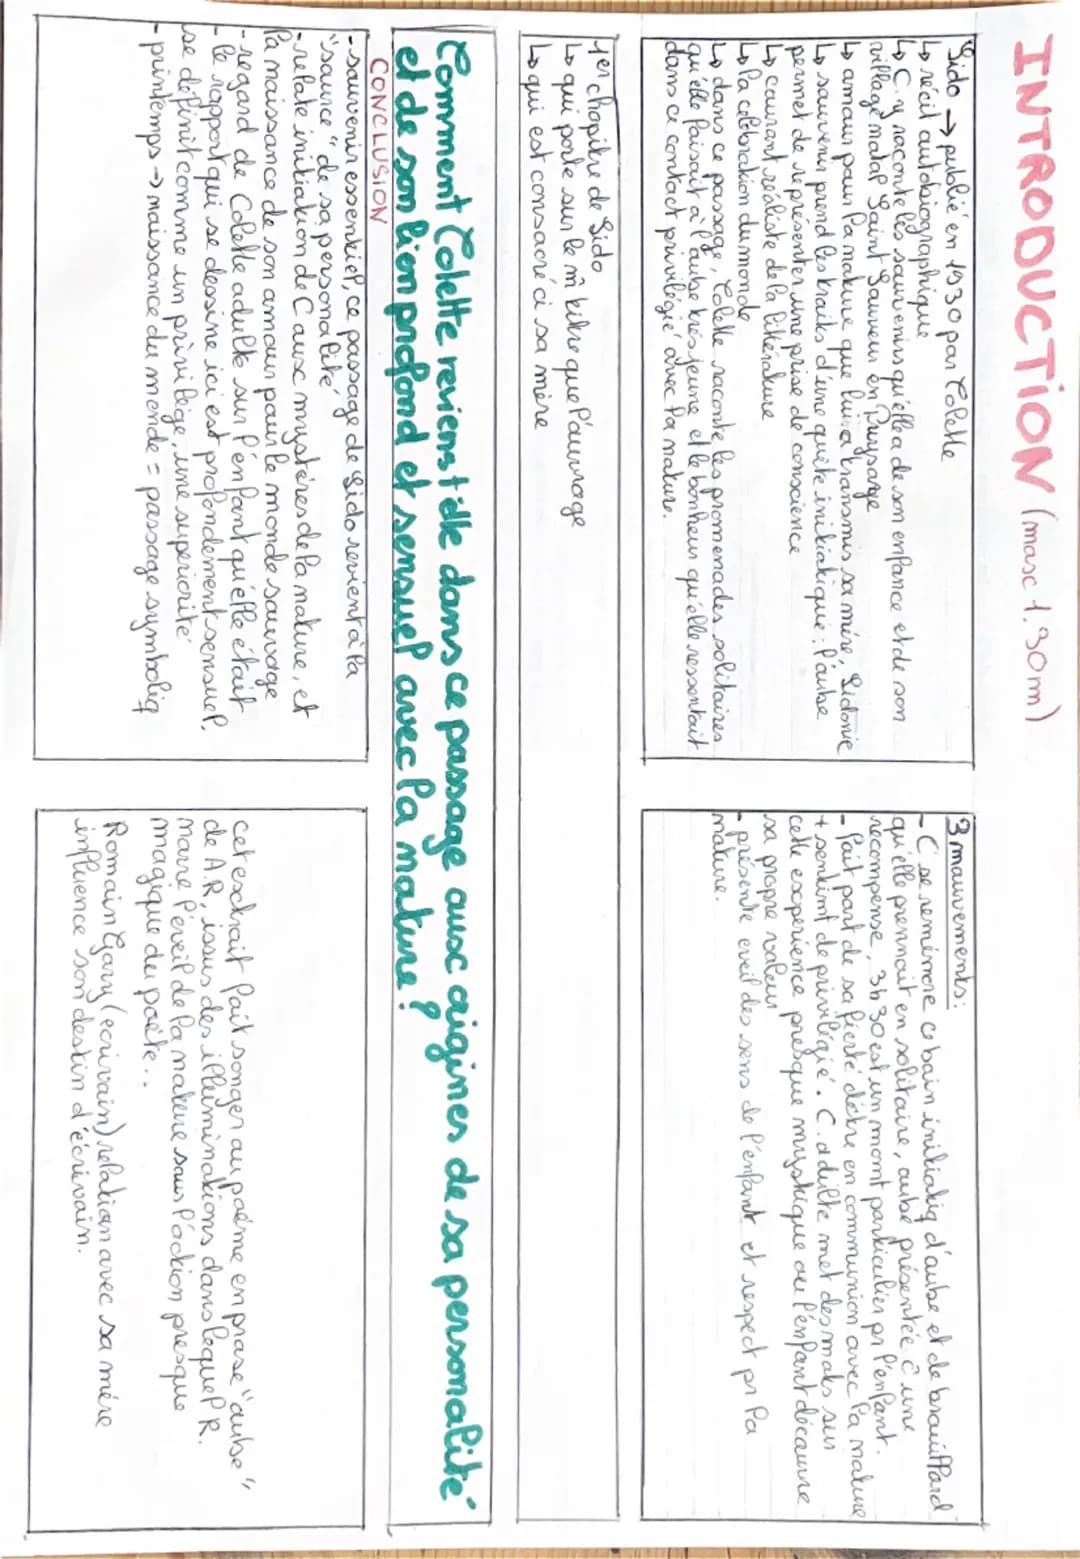 INTRODUCTION (max 1.30m)
Sido → publié en 1930 par Colette
↳ récit autobiographique
↳ C y raconte les souvenirs qu'elle a de son enfance et de son
village natal Saint Sauveur en Puysaye
↳ amour pour la nature que lui a transmis sa mère, Sidonie
↳ souvenir prend les traits d'une quête initiatique : l'aube
permet de représenter une prise de conscience
↳ courant réaliste de la littérature
↳ la célébration du monde
↳ dans ce passage, Colette raconte les promenades solitaires
qu'elle faisait à l'aube très jeune et le bonheur qu'elle ressentait
dans ce contact privilégié avec la nature.
3 mouvements:
- C se remémore ce bain initiatiq d'aube et de brouillard
qu'elle prennait en solitaire, aube présentée c̄ une
récompense, 3h30 est un momt particulier pr l'enfant.
- fait part de sa fierté d'être en communion avec la nature
+ sentimt de privilégié. C adulte met des mots sur
cette expérience presque mystique où l'enfant découvre
sa propre valeur
- présente eveil des sens de l'enfant et respect pr la
nature.
1er chapitre de Sido
↳ qui porte sur le m̂ titre que l'ouvrage
↳ qui est consacré à sa mère
Comment Colette reviens t'elle dans ce passage aux origines de sa personalité
et de son lien profond et sensuel avec la nature ?
CONCLUSION
- souvenir essentiel, ce passage de Sido revient à la
"source" de sa personalité
- relate initiation de C aux mystères de la nature, et
la naissance de son amour pour le monde sauvage
- regard de Colette adulte sur l'enfant qu'elle était
- le rapport qui se dessine ici est profondement sensuel,
se définit comme un privilège, une superiorité
- printemps → naissance du monde = passage symboliq
cet extrait fait songer au poème en prose "aube"
de A.R, issus des illuminations dans lequel R.
marre l'éveil de la nature sous l'action presque
magique du poète..
Romain Gary (ecrivain) relation avec sa mère
influence son destin d'écrivain.